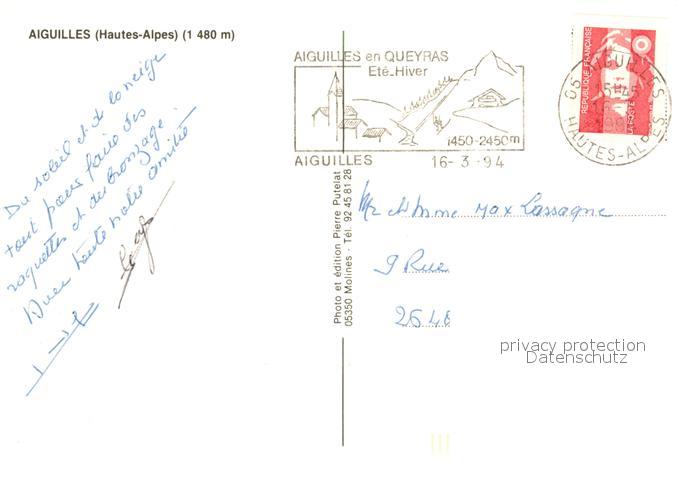 AIGUILLES (Hautes-Alpes) (1 480 m)
Du soleil et de la neige
tout pour faire des
raquettes et du bronzage.
Avec toute notre amitié
Photo et édition Pierre Putelat
05350 Molines - Tél. 92 45 81 28
AIGUILLES en QUEYRAS
Eté-Hiver
1450-2450m
AIGUILLES 16-3-94
RÉPUBLIQUE FRANÇAISE
LA POSTE
05 AIGUILLES
15H45
HAUTES-ALPES
Mr et Mme Max Lassagne
9 Rue
2648
privacy protection
Datenschutz